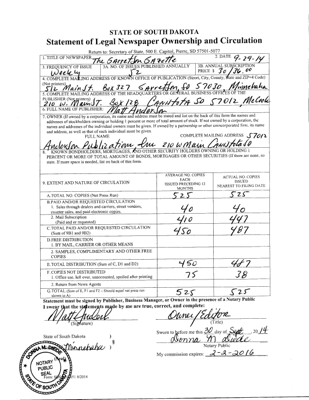 STATE OF SOUTH DAKOTA
Statement of Legal Newspaper Ownership and Circulation
Return to: Secretary of State, 500 E. Capitol, Pierre, SD 57501-5077
1. TITLE OF NEWSPAPER The Garretson Gazette 2. DATE 9-29-14
3. FREQUENCY OF ISSUE 3A. NO. OF ISSUES PUBLISHED ANNUALLY 3B. ANNUAL SUBSCRIPTION
Weekly 52 PRICE $
4. COMPLETE MAILING ADDRESS OF KNOWN OFFICE OF PUBLICATION (Street, City, County, State and ZIP+4 Code)
(Not printers)
516 Main St. Box 327 Garretson, SD 57030 Minnehaha
5. COMPLETE MAILING ADDRESS OF THE HEADQUARTERS OR GENERAL BUSINESS OFFICE OF THE
PUBLISHER (Not printer)
210 W. Main St. Box 126 Canistota SD 57012 McCook
6. FULL NAME OF PUBLISHER: Matt Anderson
7. OWNER (If owned by a corporation, its name and address must be stated and also immediately
COMPLETE MAILING ADDRESS 57012
Anderson Publications, Inc 210 W Main Canistota
8. KNOWN BONDHOLDERS, MORTGAGEES, AND OTHER SECURITY HOLDERS OWNING OR HOLDING 1
PERCENT OR MORE OF TOTAL AMOUNT OF BONDS, MORTGAGES OR OTHER SECURITIES (If there are none, so
state. If more space is needed, list on back of this form.
9. EXTENT AND NATURE OF CIRCULATION
AVERAGE NO. COPIES EACH ISSUED PRECEDING 12 MONTHS
ACTUAL NO. COPIES ISSUED NEAREST TO FILING DATE
A. TOTAL NO. COPIES (Net Press Run) 525 525
B. PAID AND/OR REQUESTED CIRCULATION
1. Sales through dealers and carriers, street vendors,
counter sales, and paid electronic copies. 40 40
2. Mail Subscription
(Paid and or requested) 410 447
C. TOTAL PAID AND/OR REQUESTED CIRCULATION
(Sum of 9B1 and 9B2) 450 487
D. FREE DISTRIBUTION
1. BY MAIL, CARRIER OR OTHER MEANS
2. SAMPLES, COMPLIMENTARY AND OTHER FREE
COPIES
E. TOTAL DISTRIBUTION (Sum of C, D1 and D2) 450 487
F. COPIES NOT DISTRIBUTED
1. Office use, left over, unaccounted, spoiled after printing 75 38
2. Return from News Agents
G. TOTAL (Sum of E, F1 and F2 - Should equal net press run
shown in A) 525 525
Statement must be signed by Publisher, Business Manager, or Owner in the presence of a Notary Public
I swear that the statements made by me are true, correct, and complete:
Matt Anderson Owner/Editor
(Signature) (Title)
State of South Dakota )
Minnehaha ) §
Sworn to before me this 30 day of Sept, 2014
Notary Public
My commission expires: 2-2-2016
NOTARY
PUBLIC
SEAL